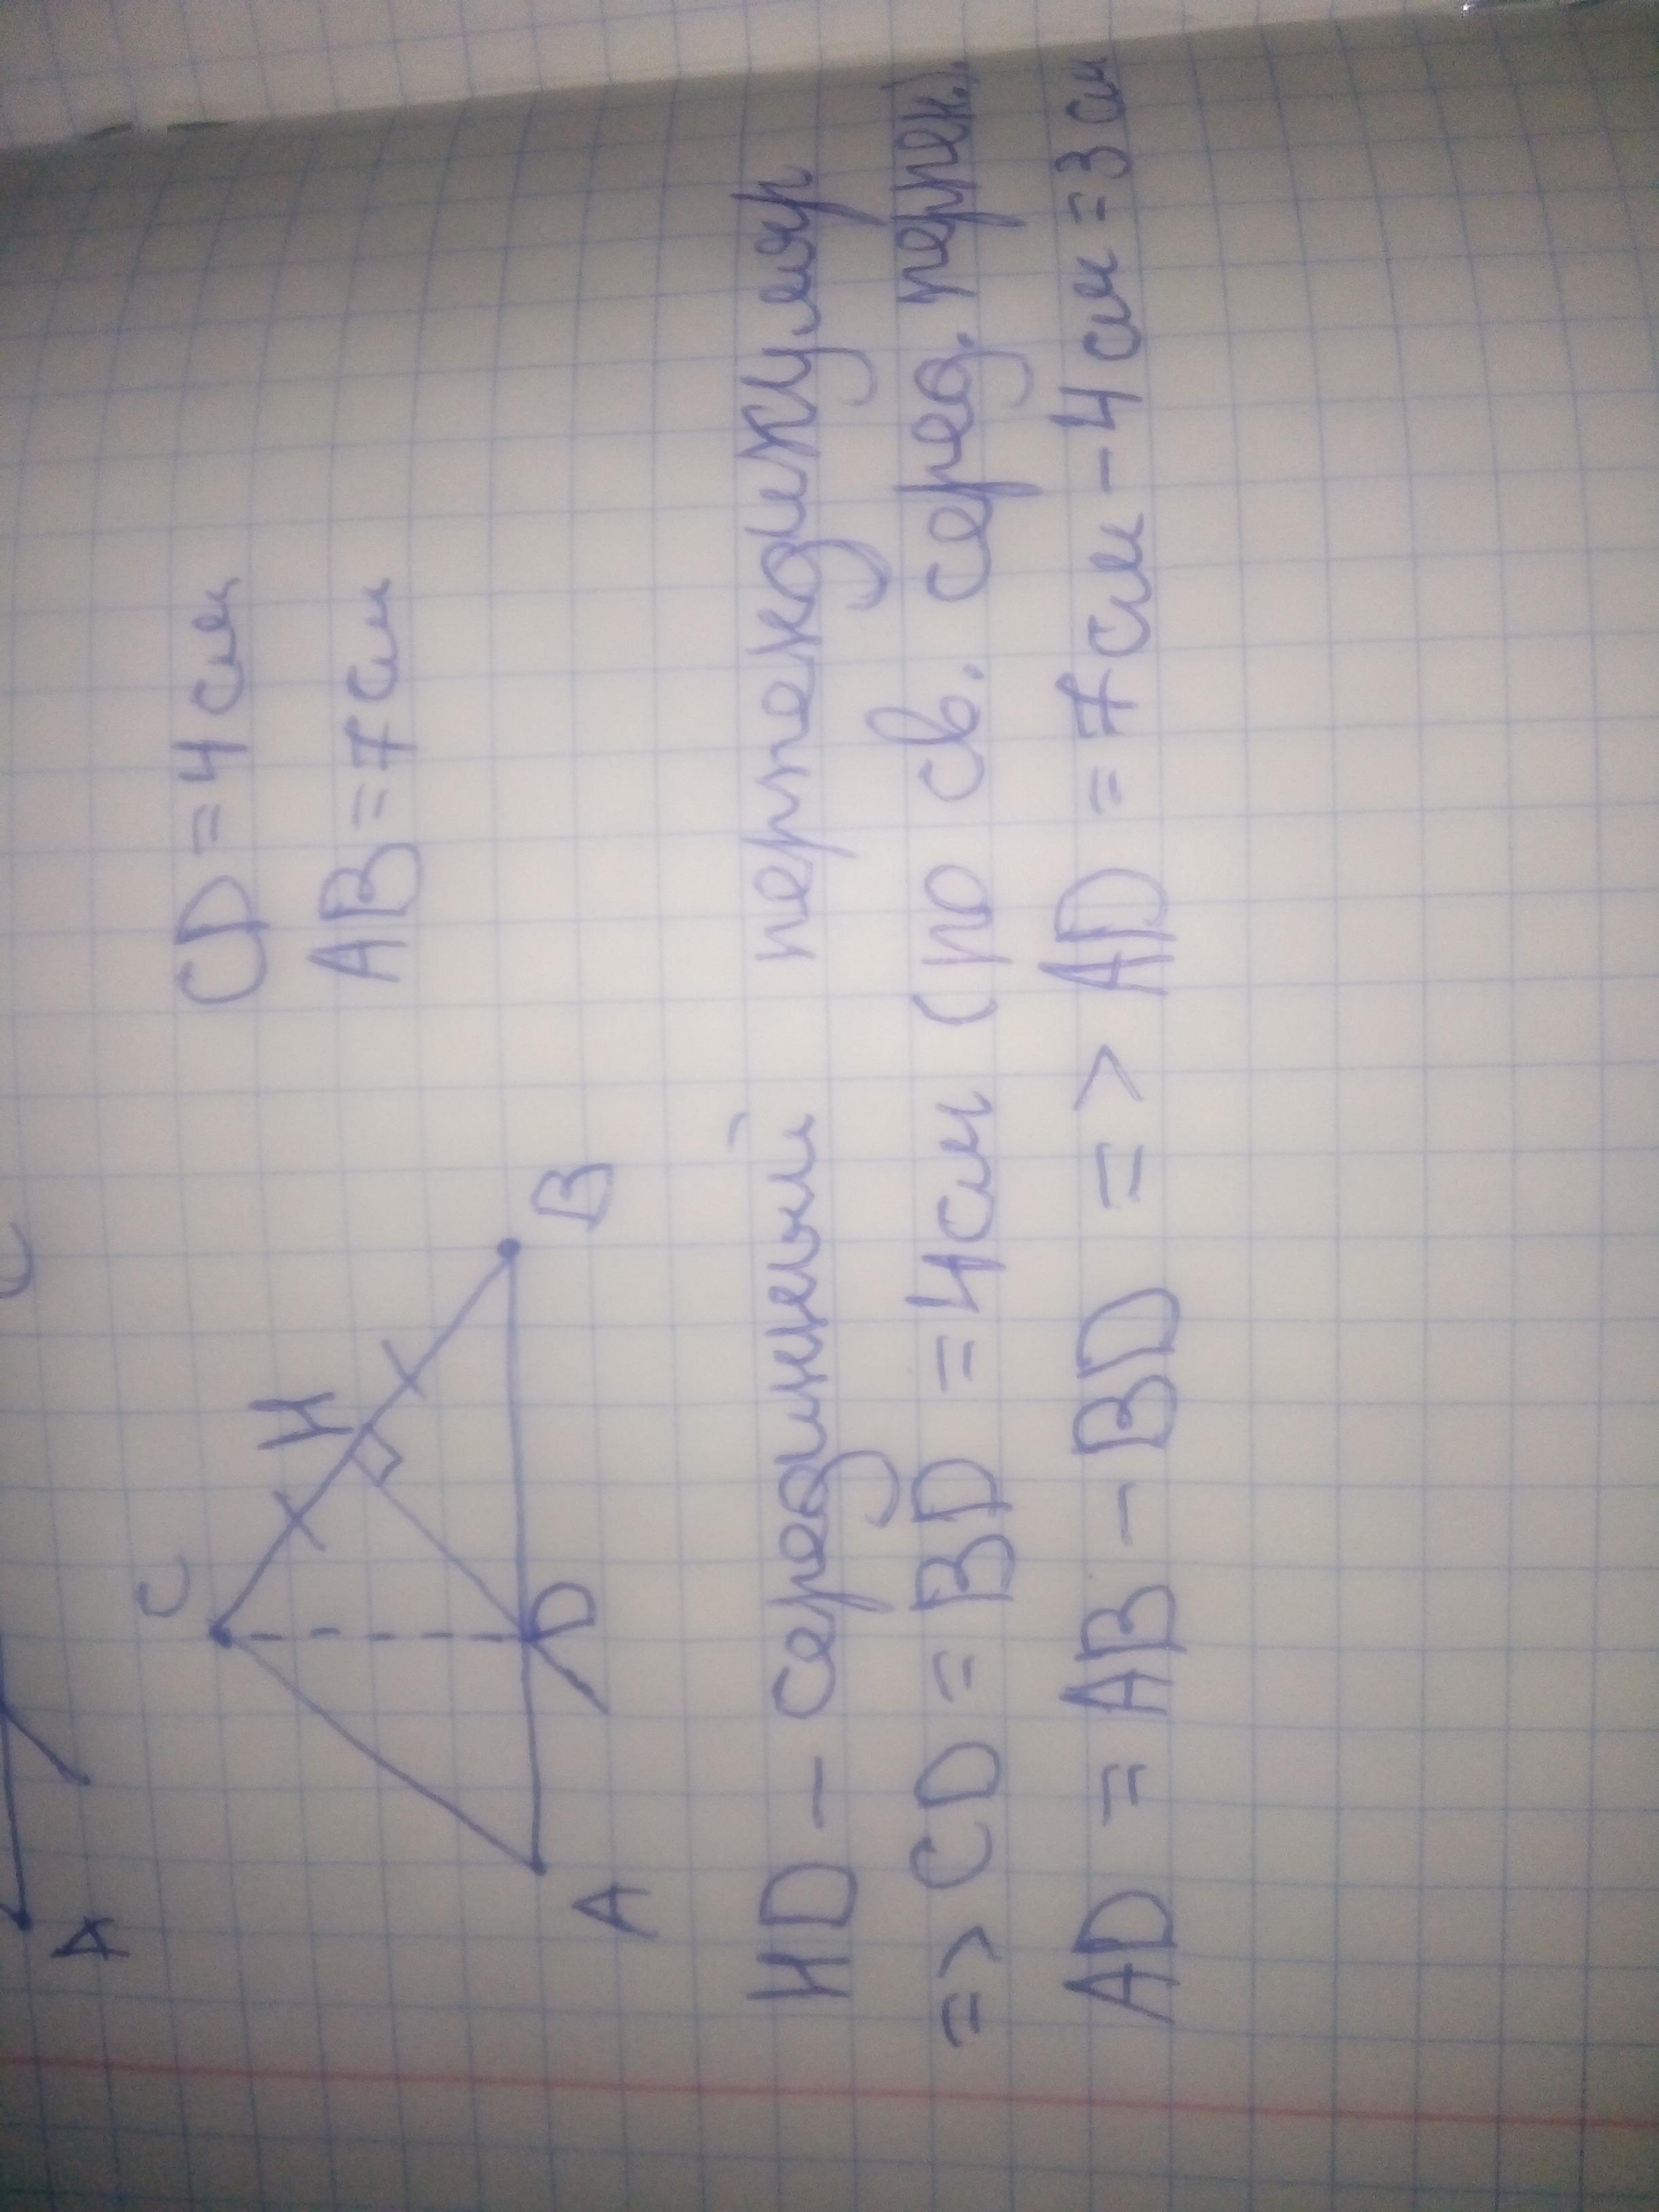 C
A
C
H
B
D
A
CD = 4 см
AB = 7 см
HD - серединный перпендикуляр
=> CD = BD = 4 см (по св. серед. перпен.).
AD = AB - BD => AD = 7 см - 4 см = 3 см